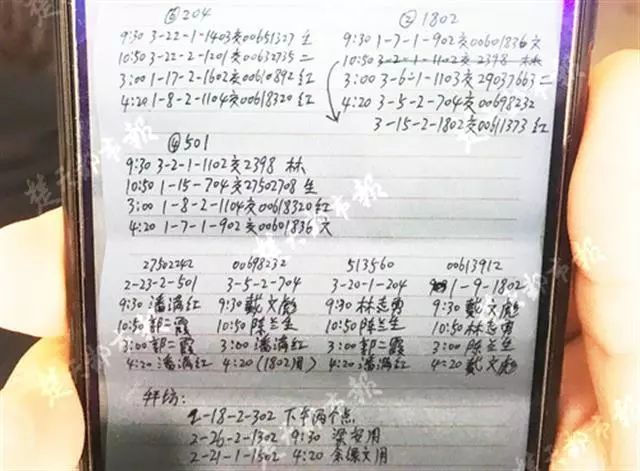 ③ 204
9:30 3-22-1-1403交00651327 生
10:50 3-22-2-1201交00632735 二
3:00 1-17-2-1602交00610892 红
4:20 1-8-2-1104交00618320 红
② 1802
9:30 1-7-1-902交00601836 文
10:50 3-2-1-1102交2398 林
3:00 3-6-1-1103交29037663 二
4:20 3-5-2-704交00698232
3-15-2-1802交00611373 红
④ 501
9:30 3-2-1-1102交2398 林
10:50 1-15-704交27502708 生
3:00 1-8-2-1104交00618320 红
4:20 1-7-1-902交00601836 文
27502242 00698232 513560 00613912
2-23-2-501 3-5-2-704 3-20-1-204 1-9-1802
9:30 潘满红 9:30 戴文彪 9:30 林志勇 9:30 戴文彪
10:50 郭二霞 10:50 陈兰生 10:50 陈兰生 10:50 林志勇
3:00 郭二霞 3:00 潘满红 3:00 郭二霞 3:00 陈兰生
4:20 潘满红 4:20 (1802用) 4:20 潘满红 4:20 戴文彪
拜访:
2-18-2-302 下午两个点
2-26-2-1302 9:30 梁安用
2-21-1-1502 4:20 用
楚天都市报